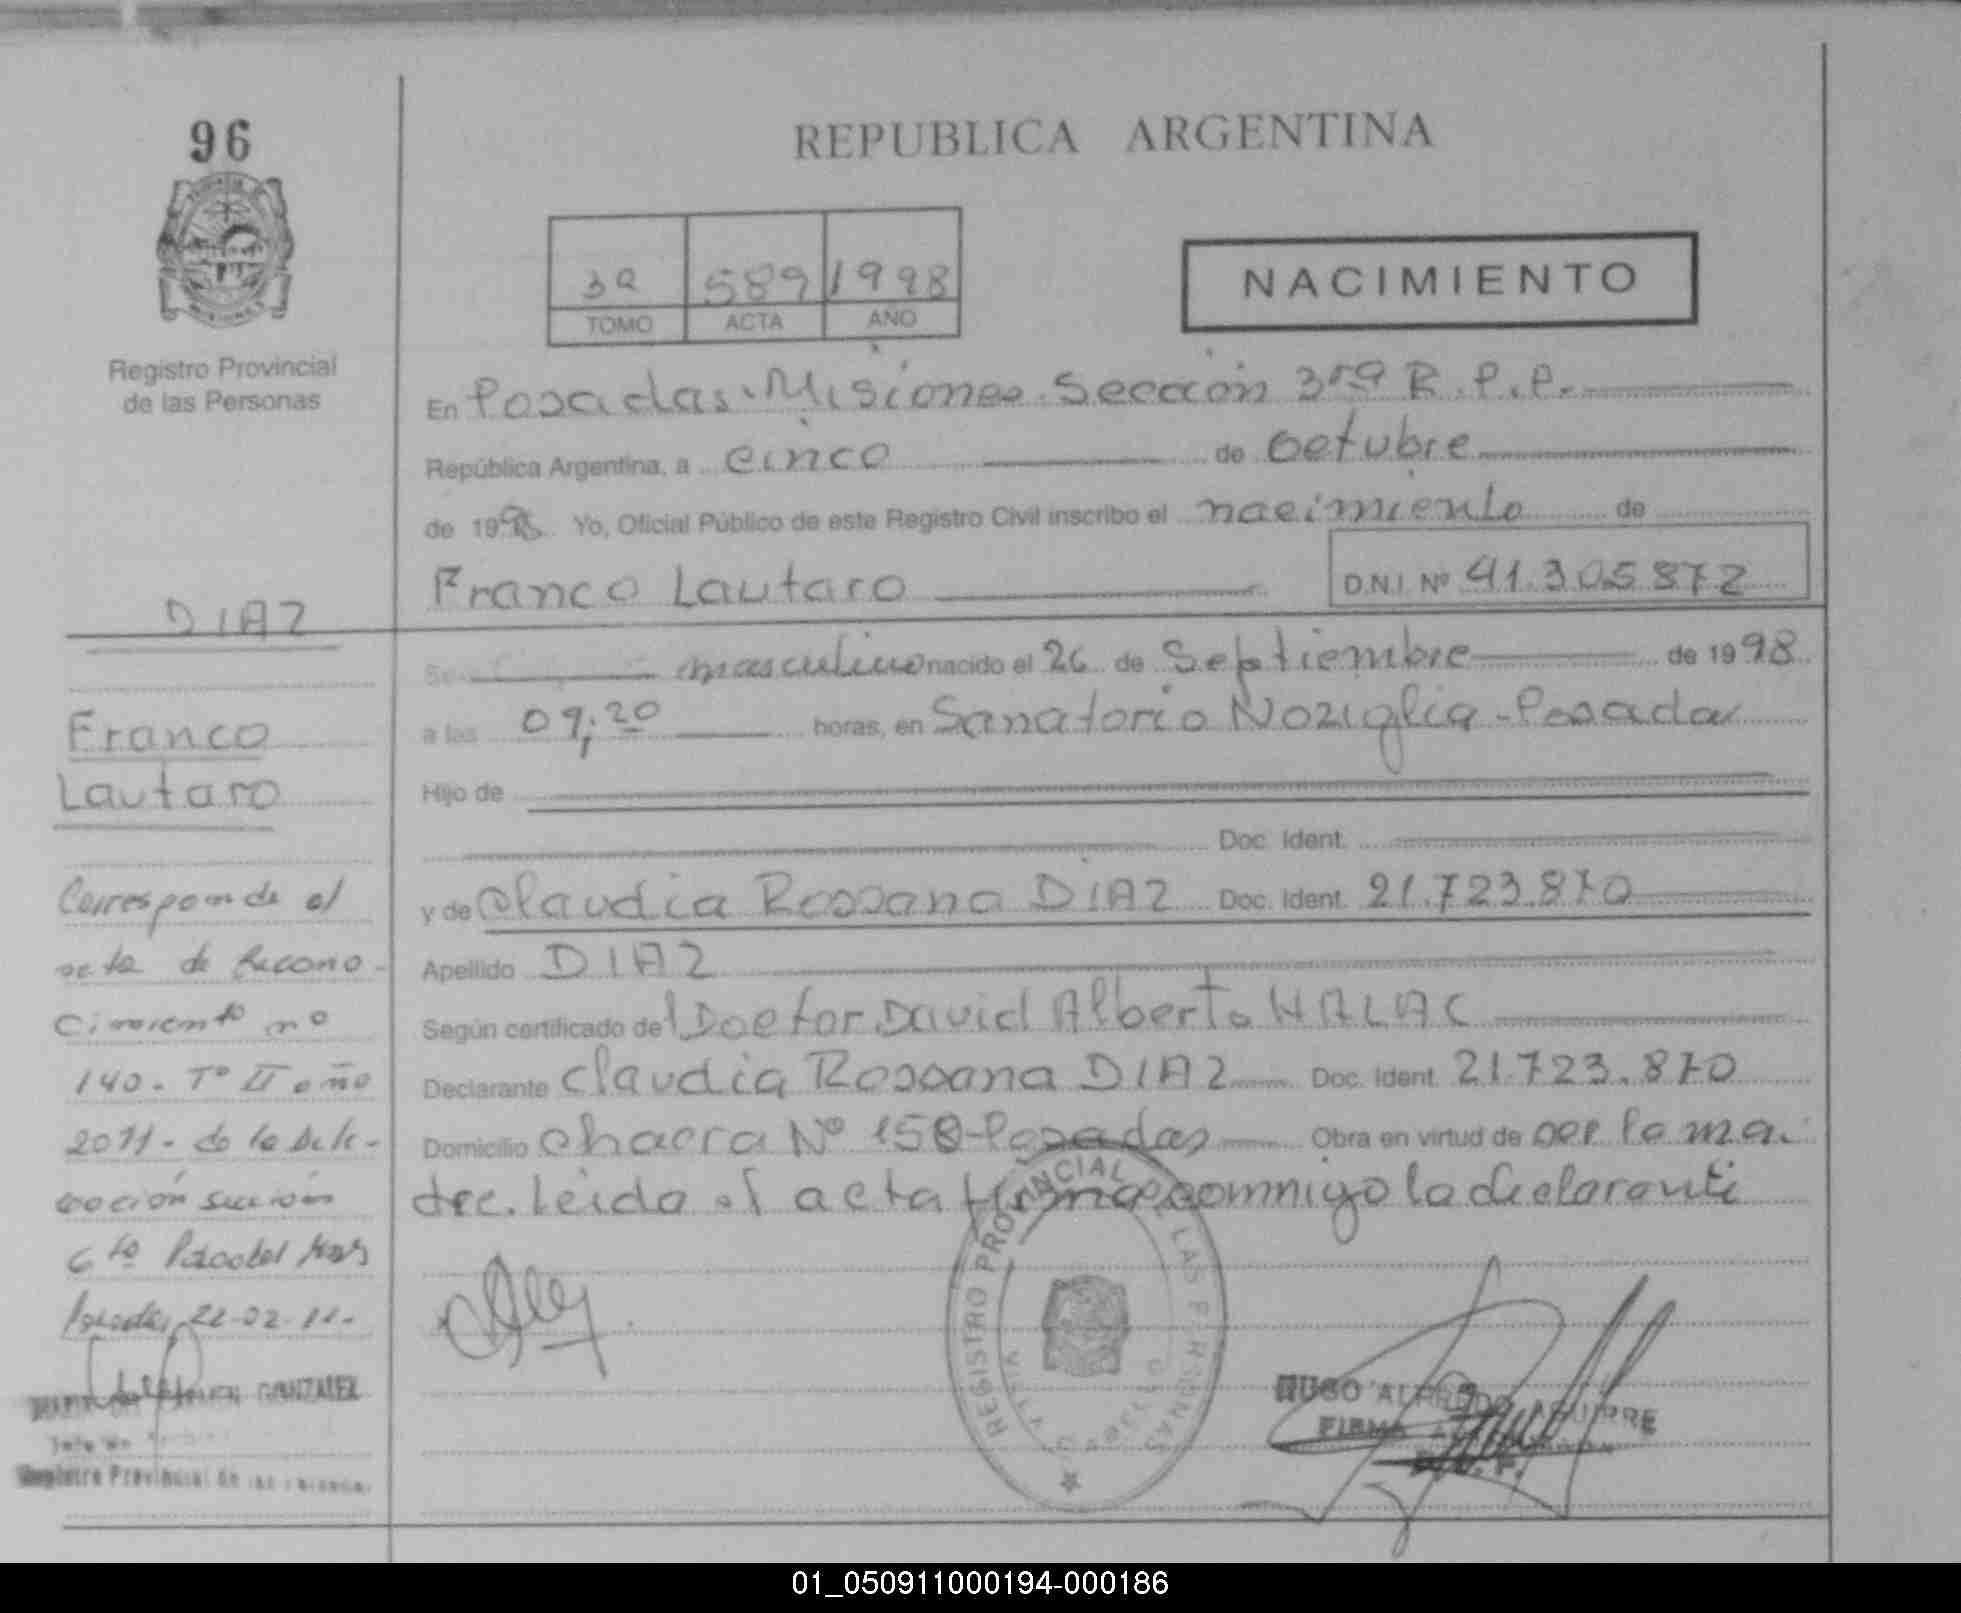 96
REPUBLICA ARGENTINA
3ª 589 1998
TOMO ACTA AÑO
NACIMIENTO
Registro Provincial
de las Personas
En Posadas. Misiones. Sección 3ra R.P.P.
República Argentina, a cinco de Octubre
de 1998 Yo, Oficial Público de este Registro Civil inscribo el nacimiento de
Franco Lautaro D.N.I. Nº 41.305.872
DIAZ
masculino nacido el 26 de Septiembre de 1998
a las 09;20 horas, en Sanatorio Noziglia - Posadas
Hijo de
Doc. Ident.
y de Claudia Rossana DIAZ Doc. Ident. 21.723.870
Apellido DIAZ
Según certificado del Doctor David Alberto HALAC
Declarante Claudia Rossana DIAZ Doc. Ident. 21.723.870
Domicilio Chacra Nº 158-Posadas Obra en virtud de ser la ma
dre. Leida el acta firma conmnigo la declarante
Franco
Lautaro
Corresponde el
acta de Recono-
cimiento nº
140. Tº II año
2011- de la Dele-
gación sección
6ta
Posadas, 22-02-11.
GONZALEZ
Registro Provincial de las Personas
REGISTRO PROVINCIAL DE LAS PERSONAS
HUGO ALFREDO AGUIRRE
FIRMA
01_050911000194-000186